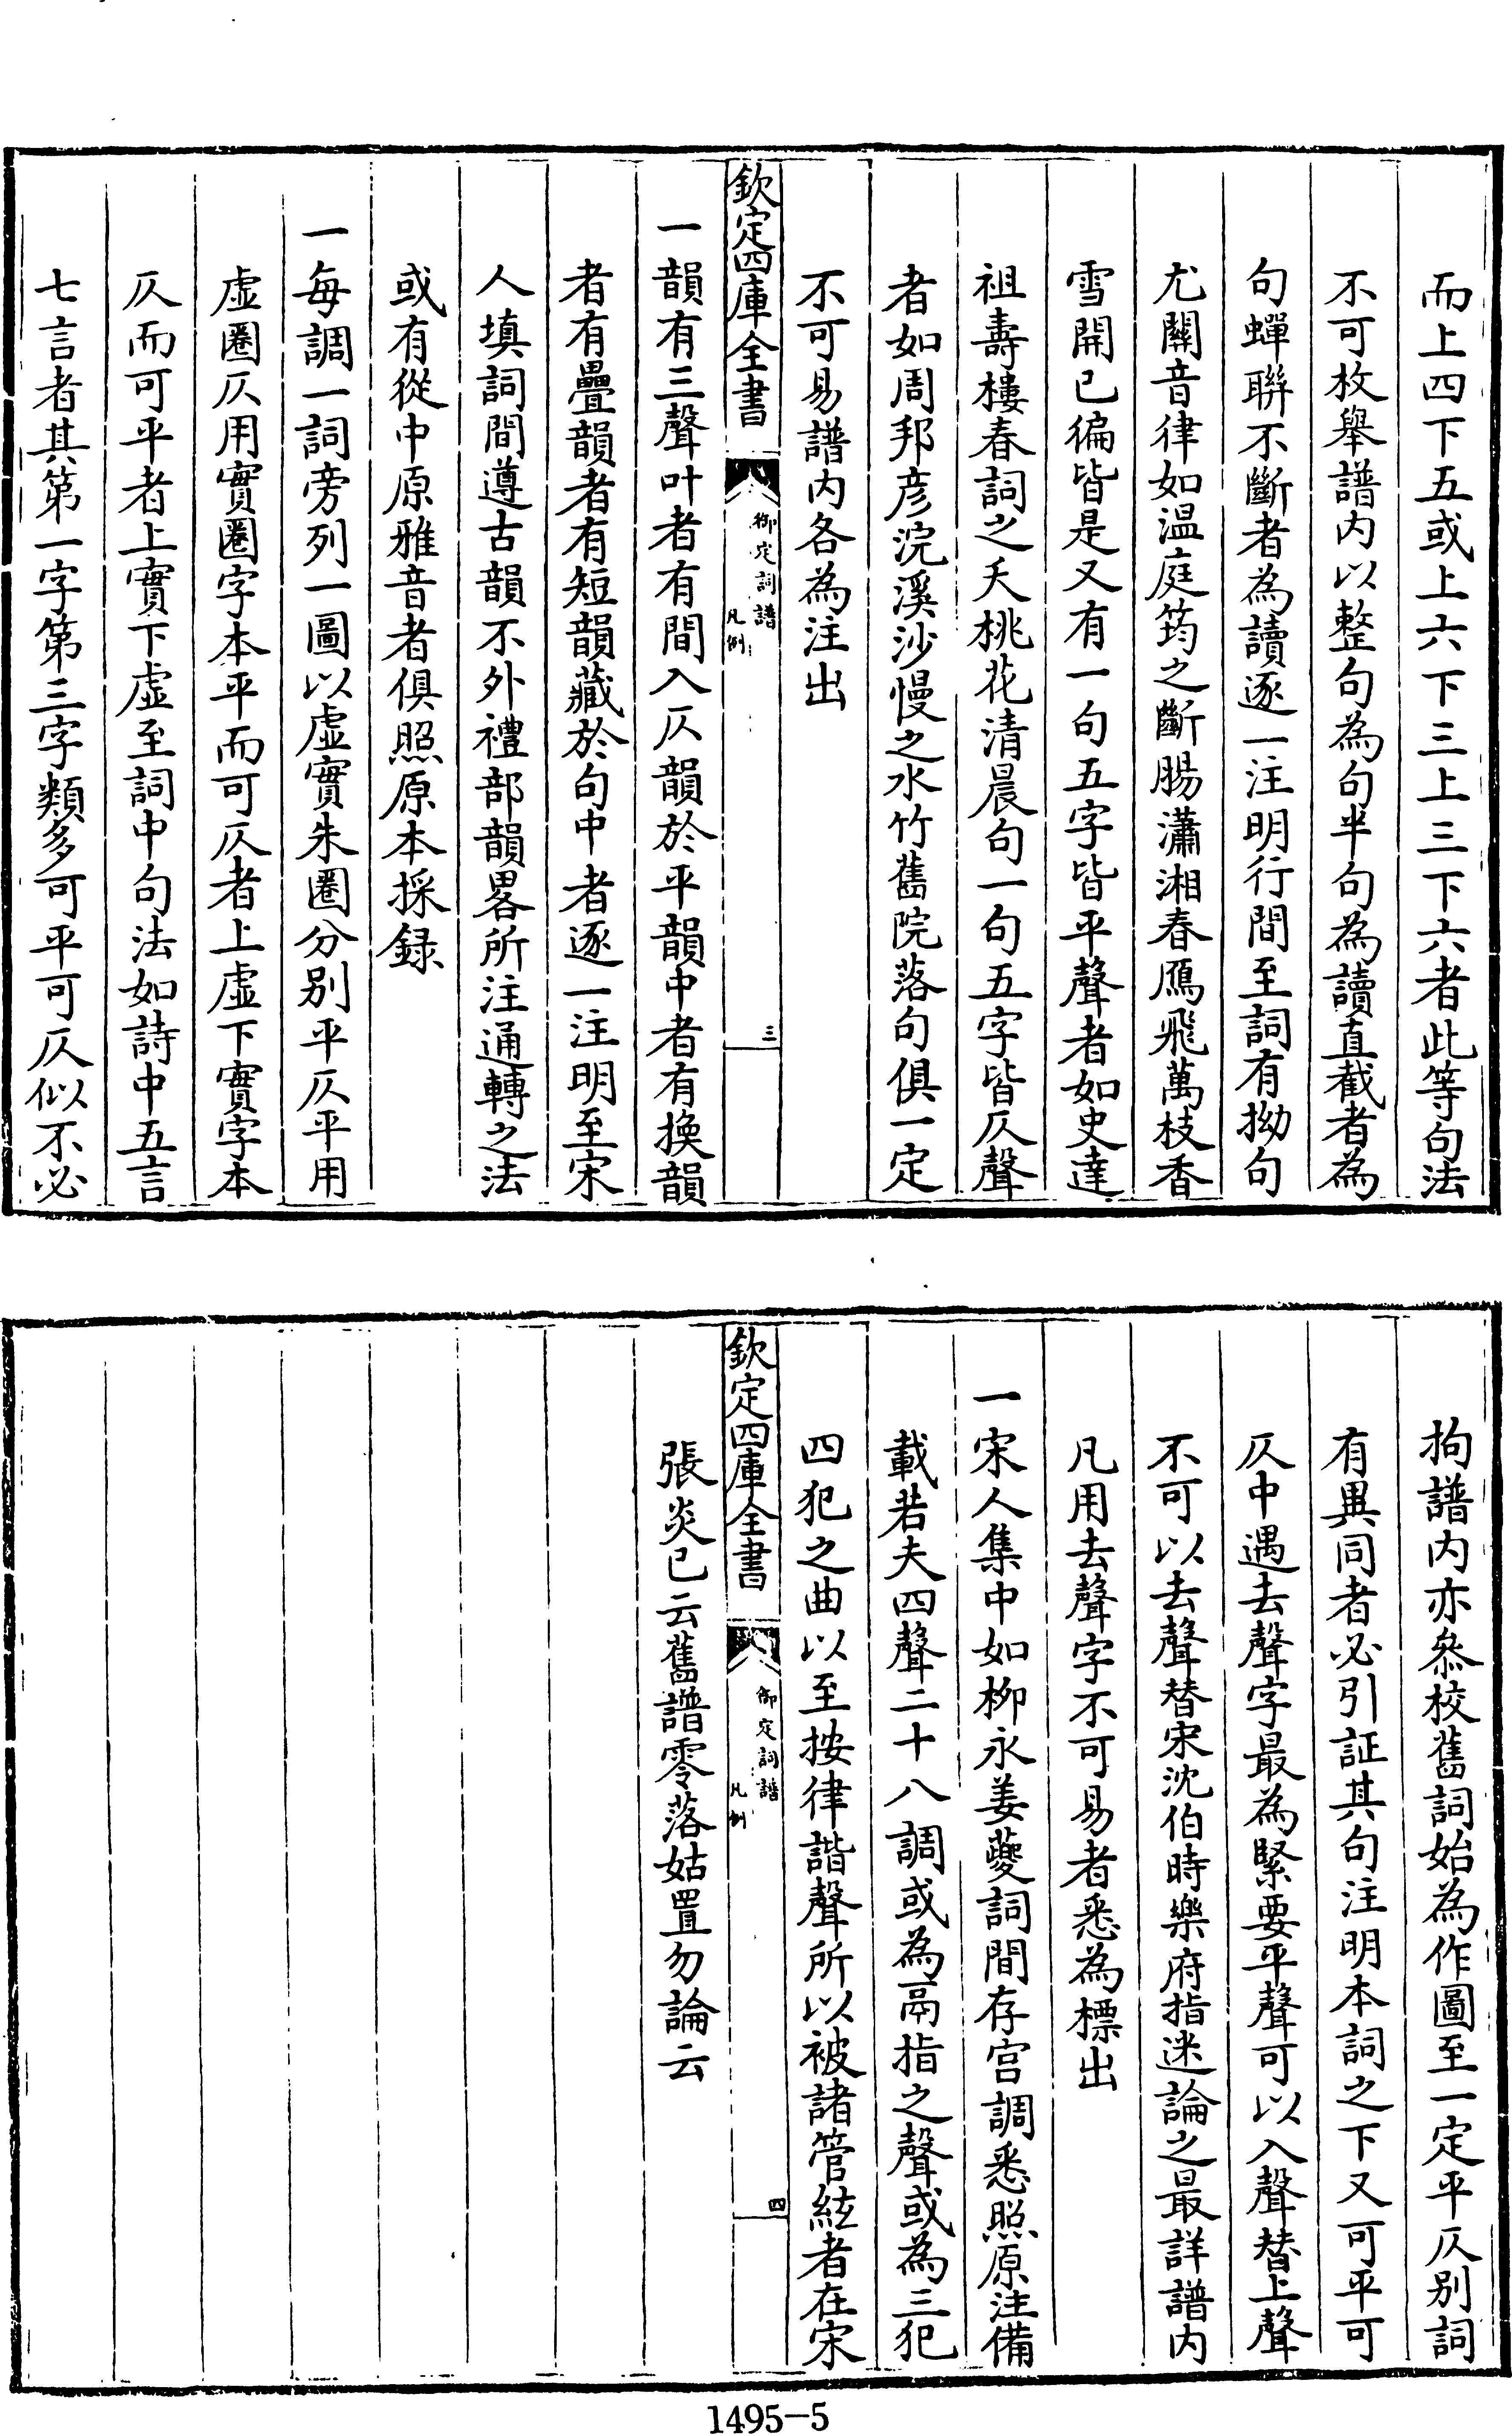 而上四下五或上六下三上三下六者此等句法
不可枚舉譜内以整句為句半句為讀直截者為
句蟬聯不斷者為讀逐一注明行間至詞有拗句
尤關音律如温庭筠之斷腸瀟湘春鴈飛萬枝香
雪開已徧皆是又有一句五字皆平聲者如史達
祖壽樓春詞之夭桃花清晨句一句五字皆仄聲
者如周邦彦浣溪沙慢之水竹舊院落句俱一定
不可易譜内各為注出
欽定四庫全書
御定詞譜
凡例
三
一韻有三聲叶者有間入仄韻於平韻中者有換韻
者有疊韻者有短韻藏於句中者逐一注明至宋
人填詞間遵古韻不外禮部韻畧所注通轉之法
或有從中原雅音者俱照原本採録
一每調一詞旁列一圖以虚實朱圈分别平仄平用
虚圈仄用實圈字本平而可仄者上虚下實字本
仄而可平者上實下虚至詞中句法如詩中五言
七言者其第一字第三字類多可平可仄似不必
拘譜内亦叅校舊詞始為作圖至一定平仄别詞
有異同者必引証其句注明本詞之下又可平可
仄中遇去聲字最為緊要平聲可以入聲替上聲
不可以去聲替宋沈伯時樂府指迷論之最詳譜内
凡用去聲字不可易者悉為標出
一宋人集中如柳永姜夔詞間存宫調悉照原注備
載若夫四聲二十八調或為鬲指之聲或為三犯
四犯之曲以至按律諧聲所以被諸管絃者在宋
欽定四庫全書
御定詞譜
凡例
四
張炎已云舊譜零落姑置勿論云
1495-5